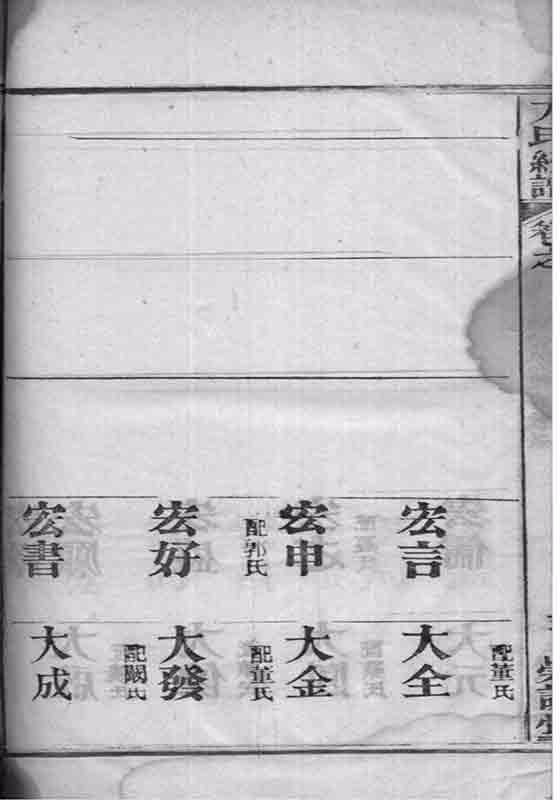 氏
譜
卷之
宏言
宏申
配郭氏
宏好
宏書
配董氏
大全
大金
配董氏
大發
配闕氏
大成